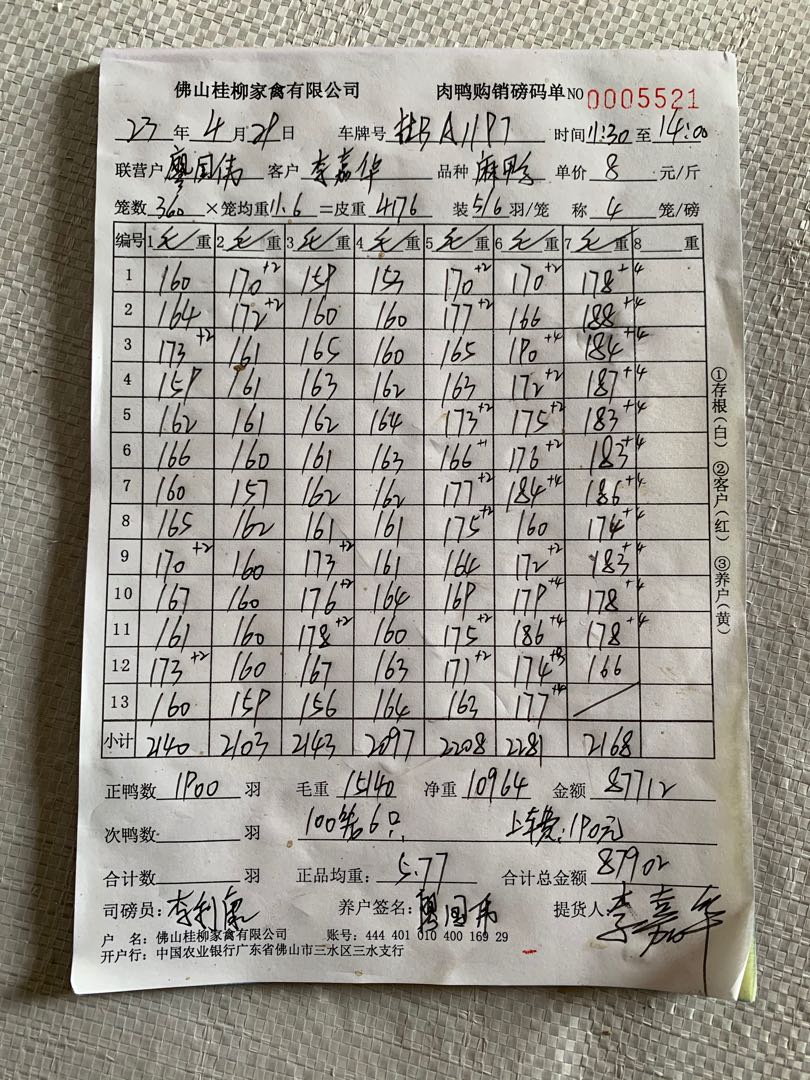 佛山桂柳家禽有限公司 肉鸭购销磅码单 NO 0005521
23 年 4 月 29 日 车牌号 桂B A1197 时间 11:30 至 14:00
联营户 廖国伟 客户 李嘉华 品种 麻鸭 单价 8 元/斤
笼数 360 ×笼均重 11.6 =皮重 4176 装 5/6 羽/笼 称 4 笼/磅
编号 1 毛/重 2 毛/重 3 毛/重 4 毛/重 5 毛/重 6 毛/重 7 毛/重 8 重
1 160 170+2 159 153 170+2 170+2 178+4
2 164 172+2 160 160 177+2 166 188+4
3 173+2 161 165 160 165 190+4 184+4
4 159 161 163 162 163 172+2 187+4
5 162 161 162 164 173+2 175+2 183+4
6 166 160 161 163 166+1 176+2 183+4
7 160 157 162 162 177+2 184+4 186+4
8 165 162 161 161 175+2 160 174+4
9 170+2 160 173+2 161 164 172+2 183+4
10 167 160 176+2 164 169 179+4 178+4
11 161 160 178+2 160 175+2 186+4 178+4
12 173+2 160 167 163 171+2 174+3 166
13 160 159 156 164 163 177+4
小计 2140 2103 2143 2097 2208 2281 2168
①存根(白) ②客户(红) ③养户(黄)
正鸭数 1900 羽 毛重 15140 净重 10964 金额 87712
次鸭数 羽 100笼6只 上车费:190元
合计数 羽 正品均重: 5.77 合计总金额 87902
司磅员: 李利 养户签名: 廖国伟 提货人 李嘉华
户 名: 佛山桂柳家禽有限公司 账号: 444 401 010 400 169 29
开户行: 中国农业银行广东省佛山市三水区三水支行